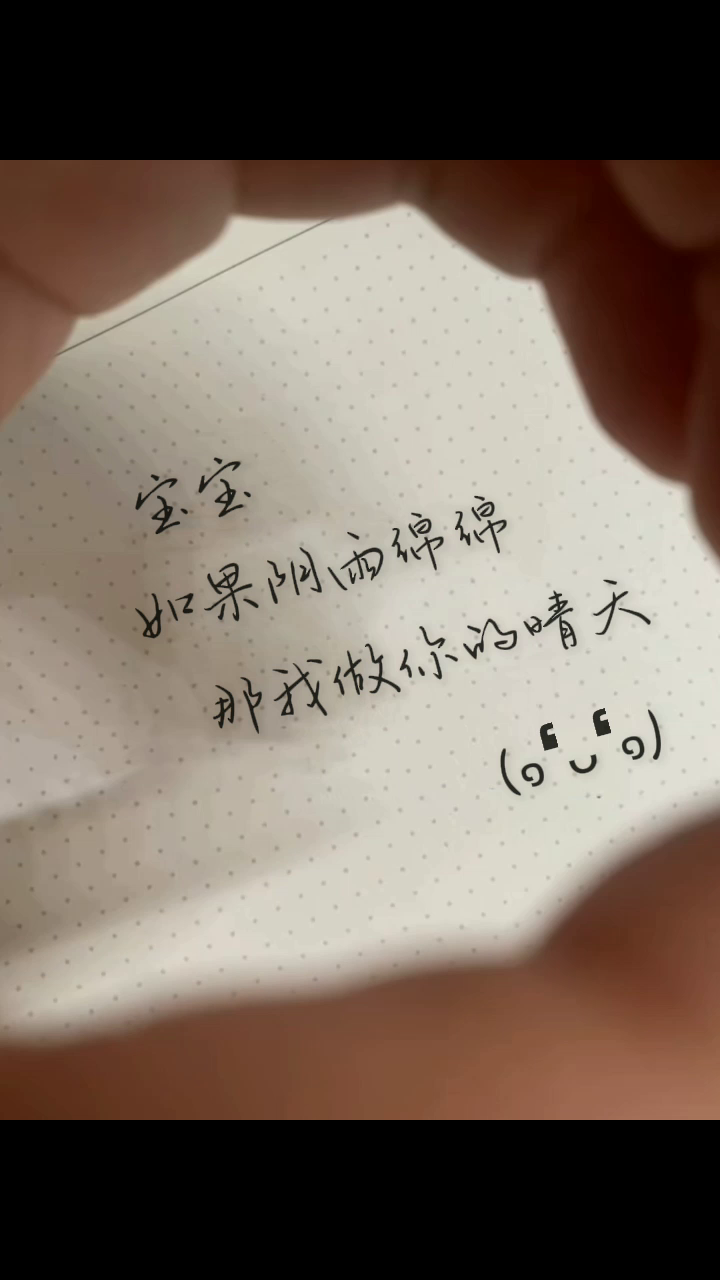 宝宝
如果阴雨绵绵
那我做你的晴天